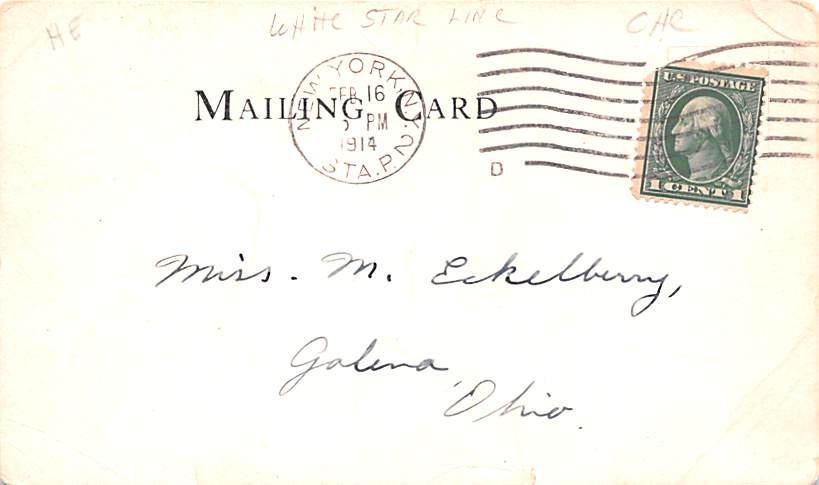 HE WHITE STAR LINE
MAILING CARD
NEW YORK, N.Y. 2
FEB 16
PM
1914
STA. P.
D
U.S. POSTAGE
1 CENT 1
Miss. M. Eckelberry,
Galena,
Ohio.